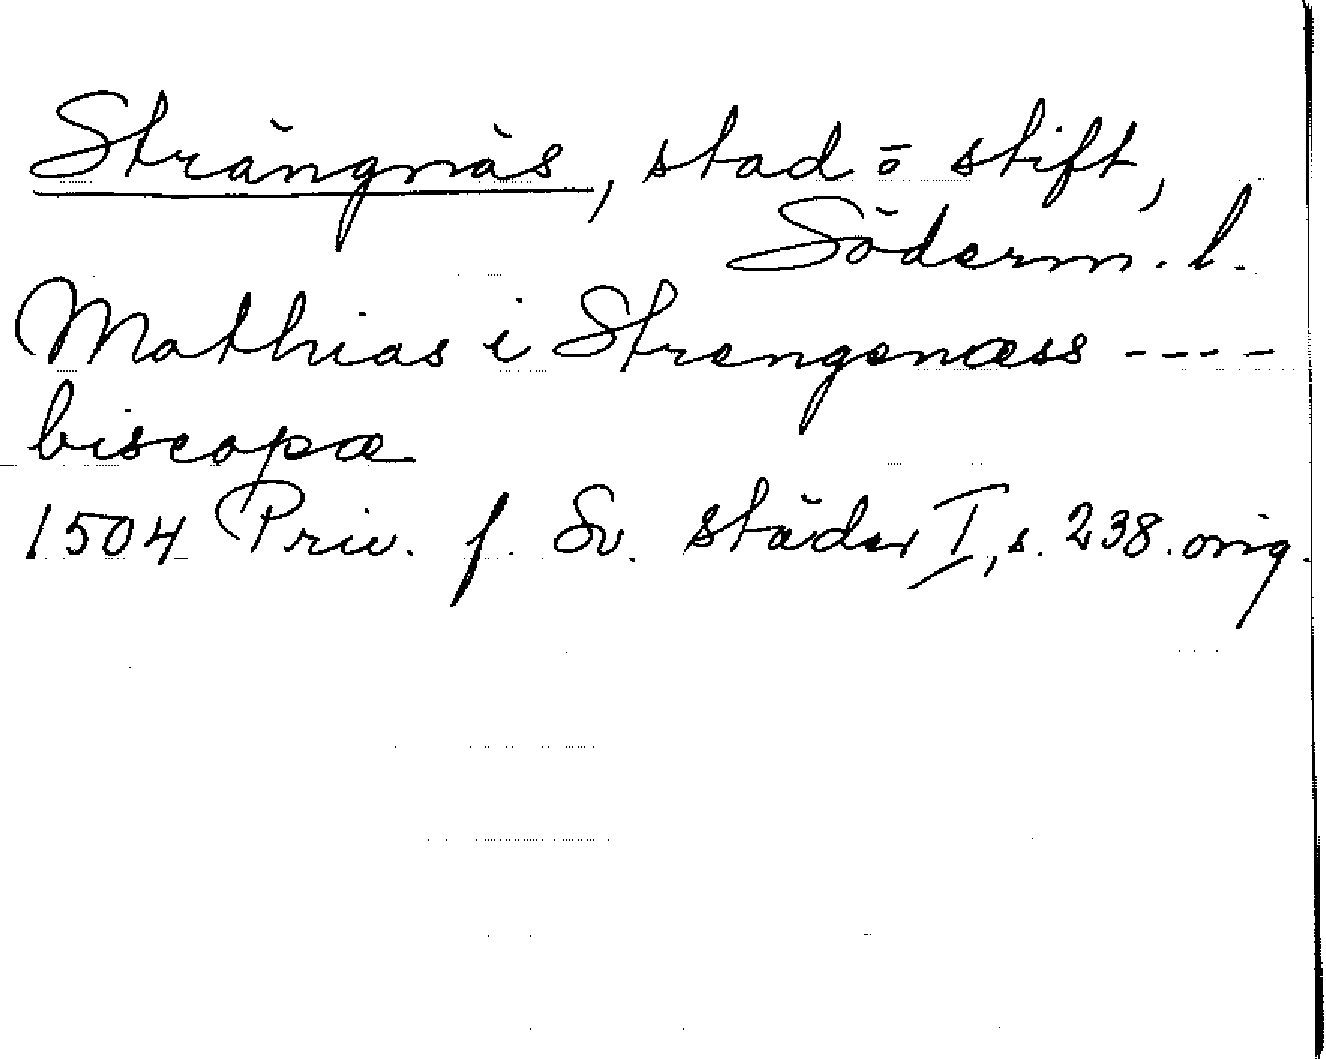 Strängnäs, stad o stift,
Söderm. l.
Mathias i Strengenæss ----
biscopæ
1504 Priv. f. Sv. städer I, s. 238. orig.